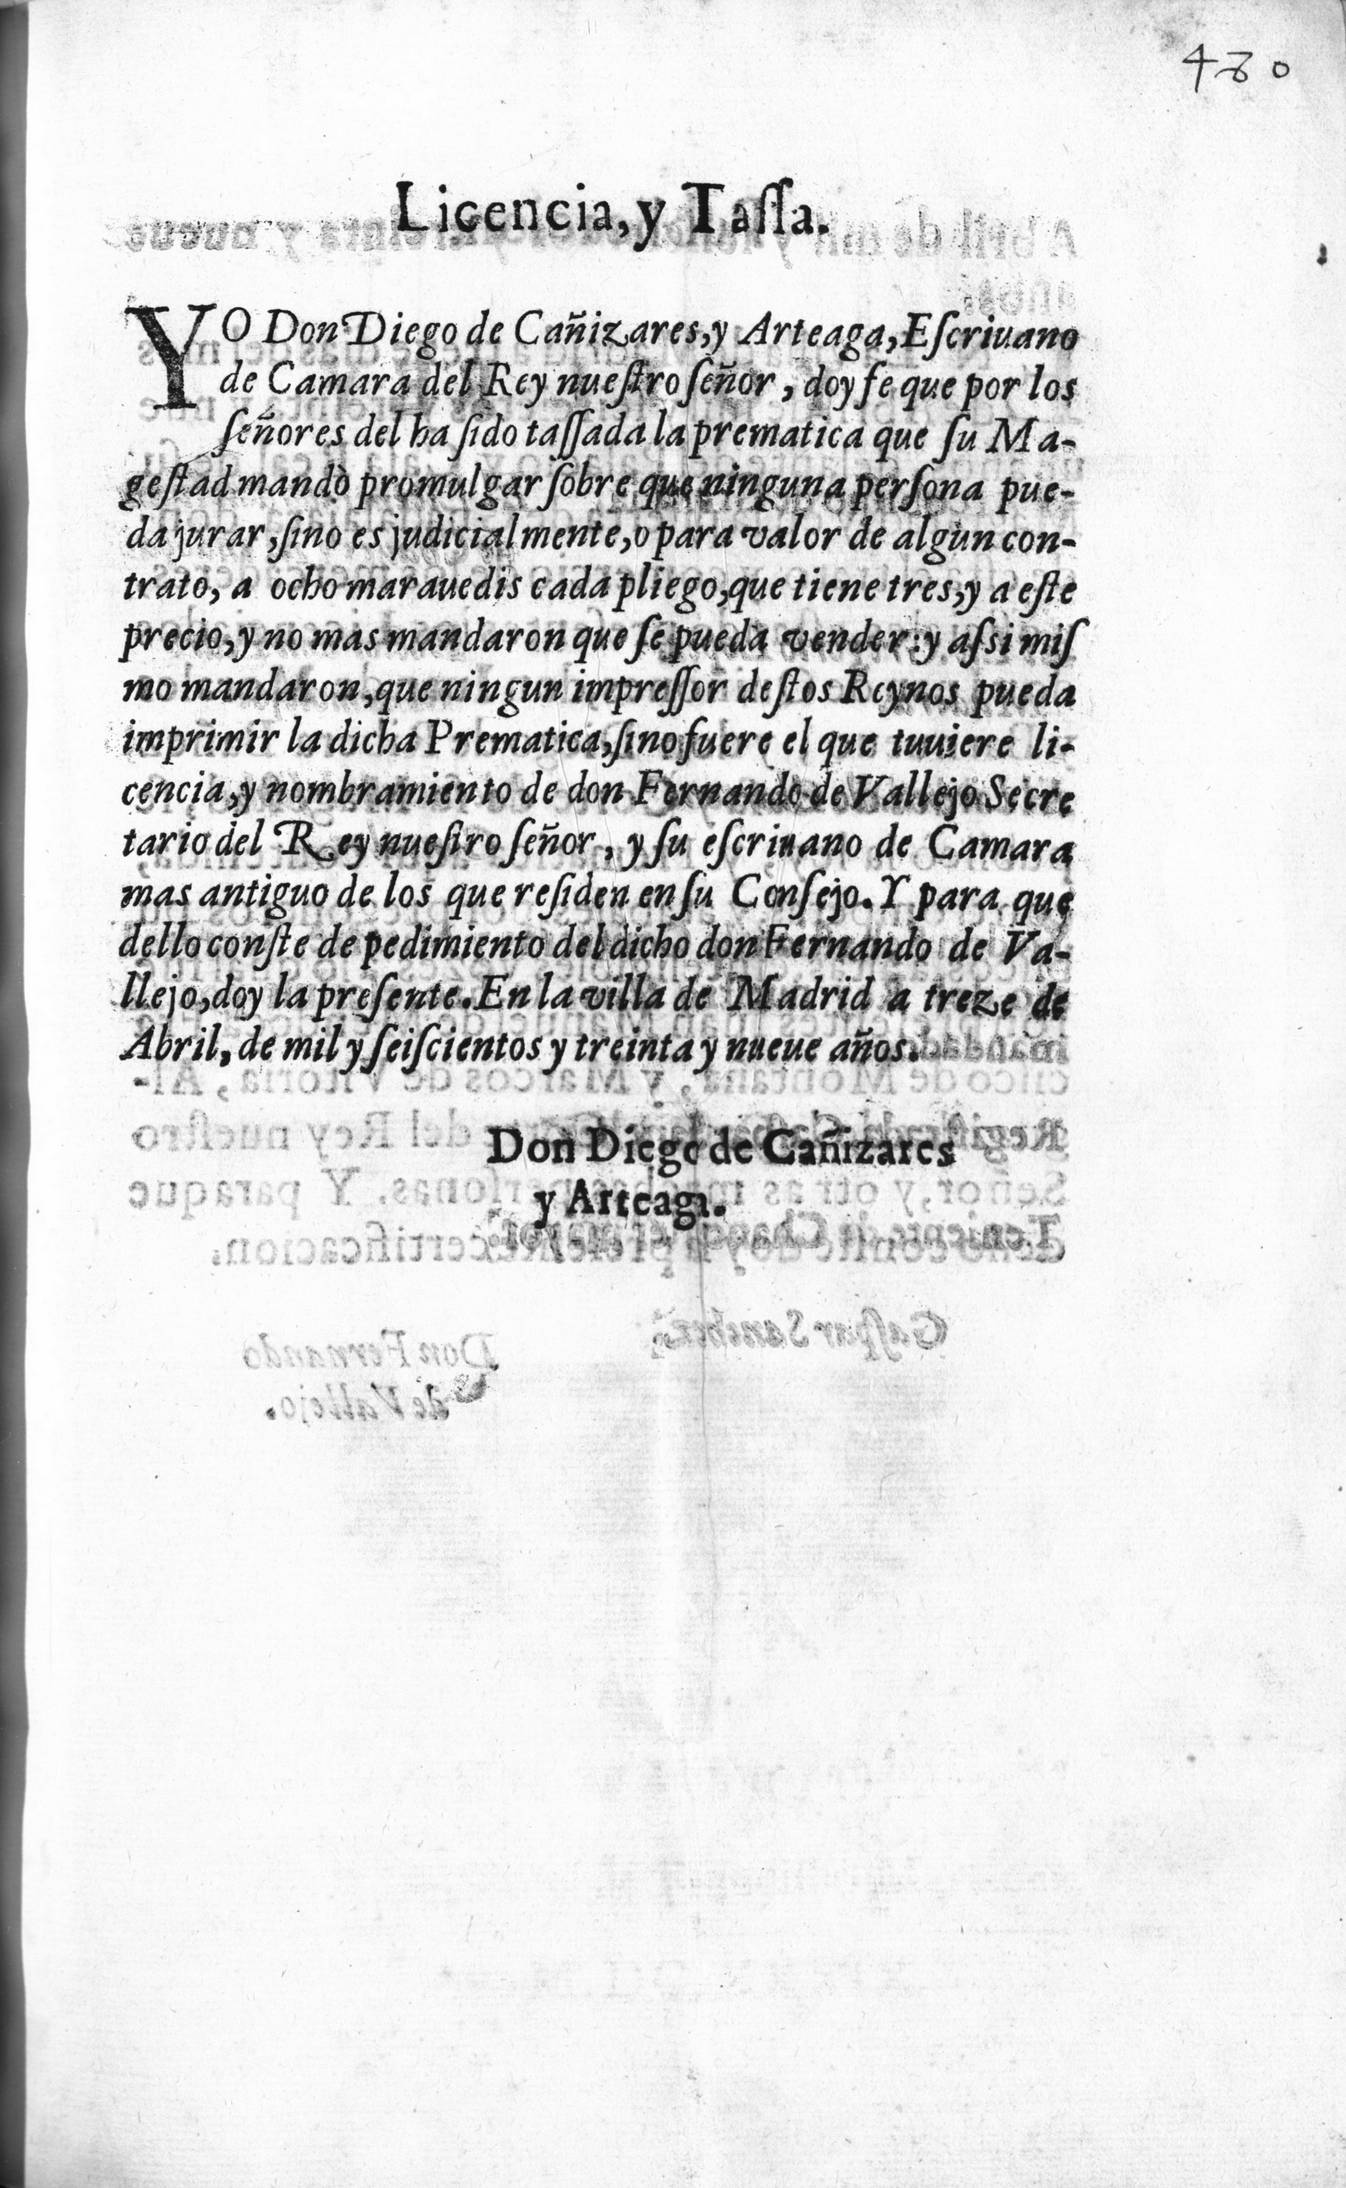 480
Licencia, y Tassa.
YO Don Diego de Cañizares, y Arteaga, Escriuano
de Camara del Rey nuestro señor, doy fe que por los
señores del ha sido tassada la prematica que su Ma-
gestad mandò promulgar sobre que ninguna persona pue-
da jurar, sino es judicialmente, o para valor de algun con-
trato, a ocho marauedis cada pliego, que tiene tres, y a este
precio, y no mas mandaron que se pueda vender: y assi mis
mo mandaron, que ningun impressor destos Reynos pueda
imprimir la dicha Prematica, sino fuere el que tuuiere li-
cencia, y nombramiento de don Fernando de Vallejo Secre
tario del Rey nuestro señor, y su escriuano de Camara
mas antiguo de los que residen en su Consejo. Y para que
dello conste de pedimiento del dicho don Fernando de Va-
llejo, doy la presente. En la villa de Madrid a treze de
Abril, de mil y seiscientos y treinta y nueue años.
Don Diego de Cañizares
y Arteaga.